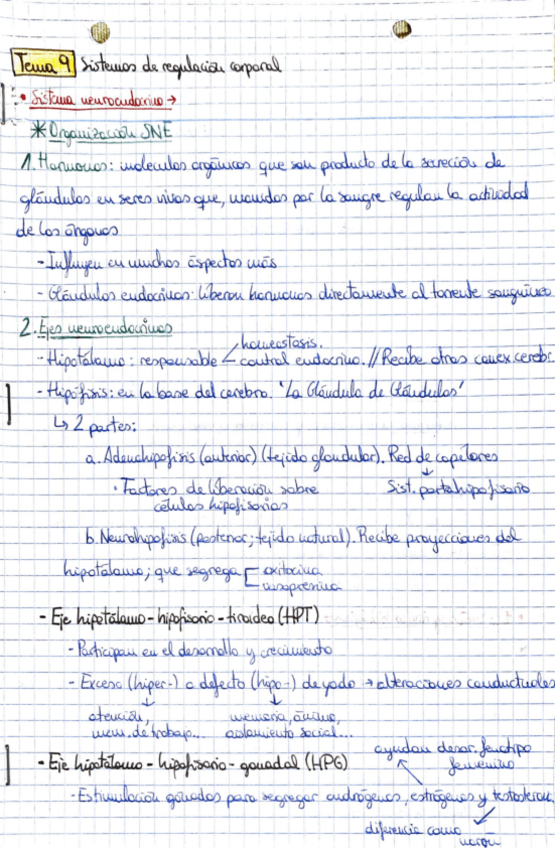 Tema 9 Sistemas de regulación corporal
• Sistema neuroendocrino →
* Organización SNE
1. Hormonas: moléculas orgánicas que son producto de la secreción de
glándulas en seres vivos que, movidas por la sangre regulan la actividad
de los órganos
- Influyen en muchos aspectos más
- Glándulas endocrinas: liberan hormonas directamente al torrente sanguíneo
2. Ejes neuroendocrinos
homeostasis.
- Hipotálamo: responsable control endocrino. // Recibe otras conex. cerebr.
- Hipófisis: en la base del cerebro. 'La Glándula de Glándulas'
↳ 2 partes:
a. Adenohipófisis (anterior) (tejido glandular). Red de capilares
· Factores de liberación sobre Sist. portahipofisario
células hipofisarias
b. Neurohipófisis (posterior; tejido natural). Recibe proyecciones del
hipotálamo; que segrega oxitocina
vasopresina
- Eje hipotálamo - hipofisario - tiroideo (HPT)
- Participan en el desarrollo y crecimiento
- Exceso (hiper-) o defecto (hipo-) de yodo → alteraciones conductuales
atención, memoria, ánimo,
mem. de trabajo... aislamiento social...
ayudan desar. fenotipo
- Eje hipotálamo - hipofisario - gonadal (HPG) femenino
- Estimulación gónadas para segregar andrógenos, estrógenos y testosterona
diferencia como
varón